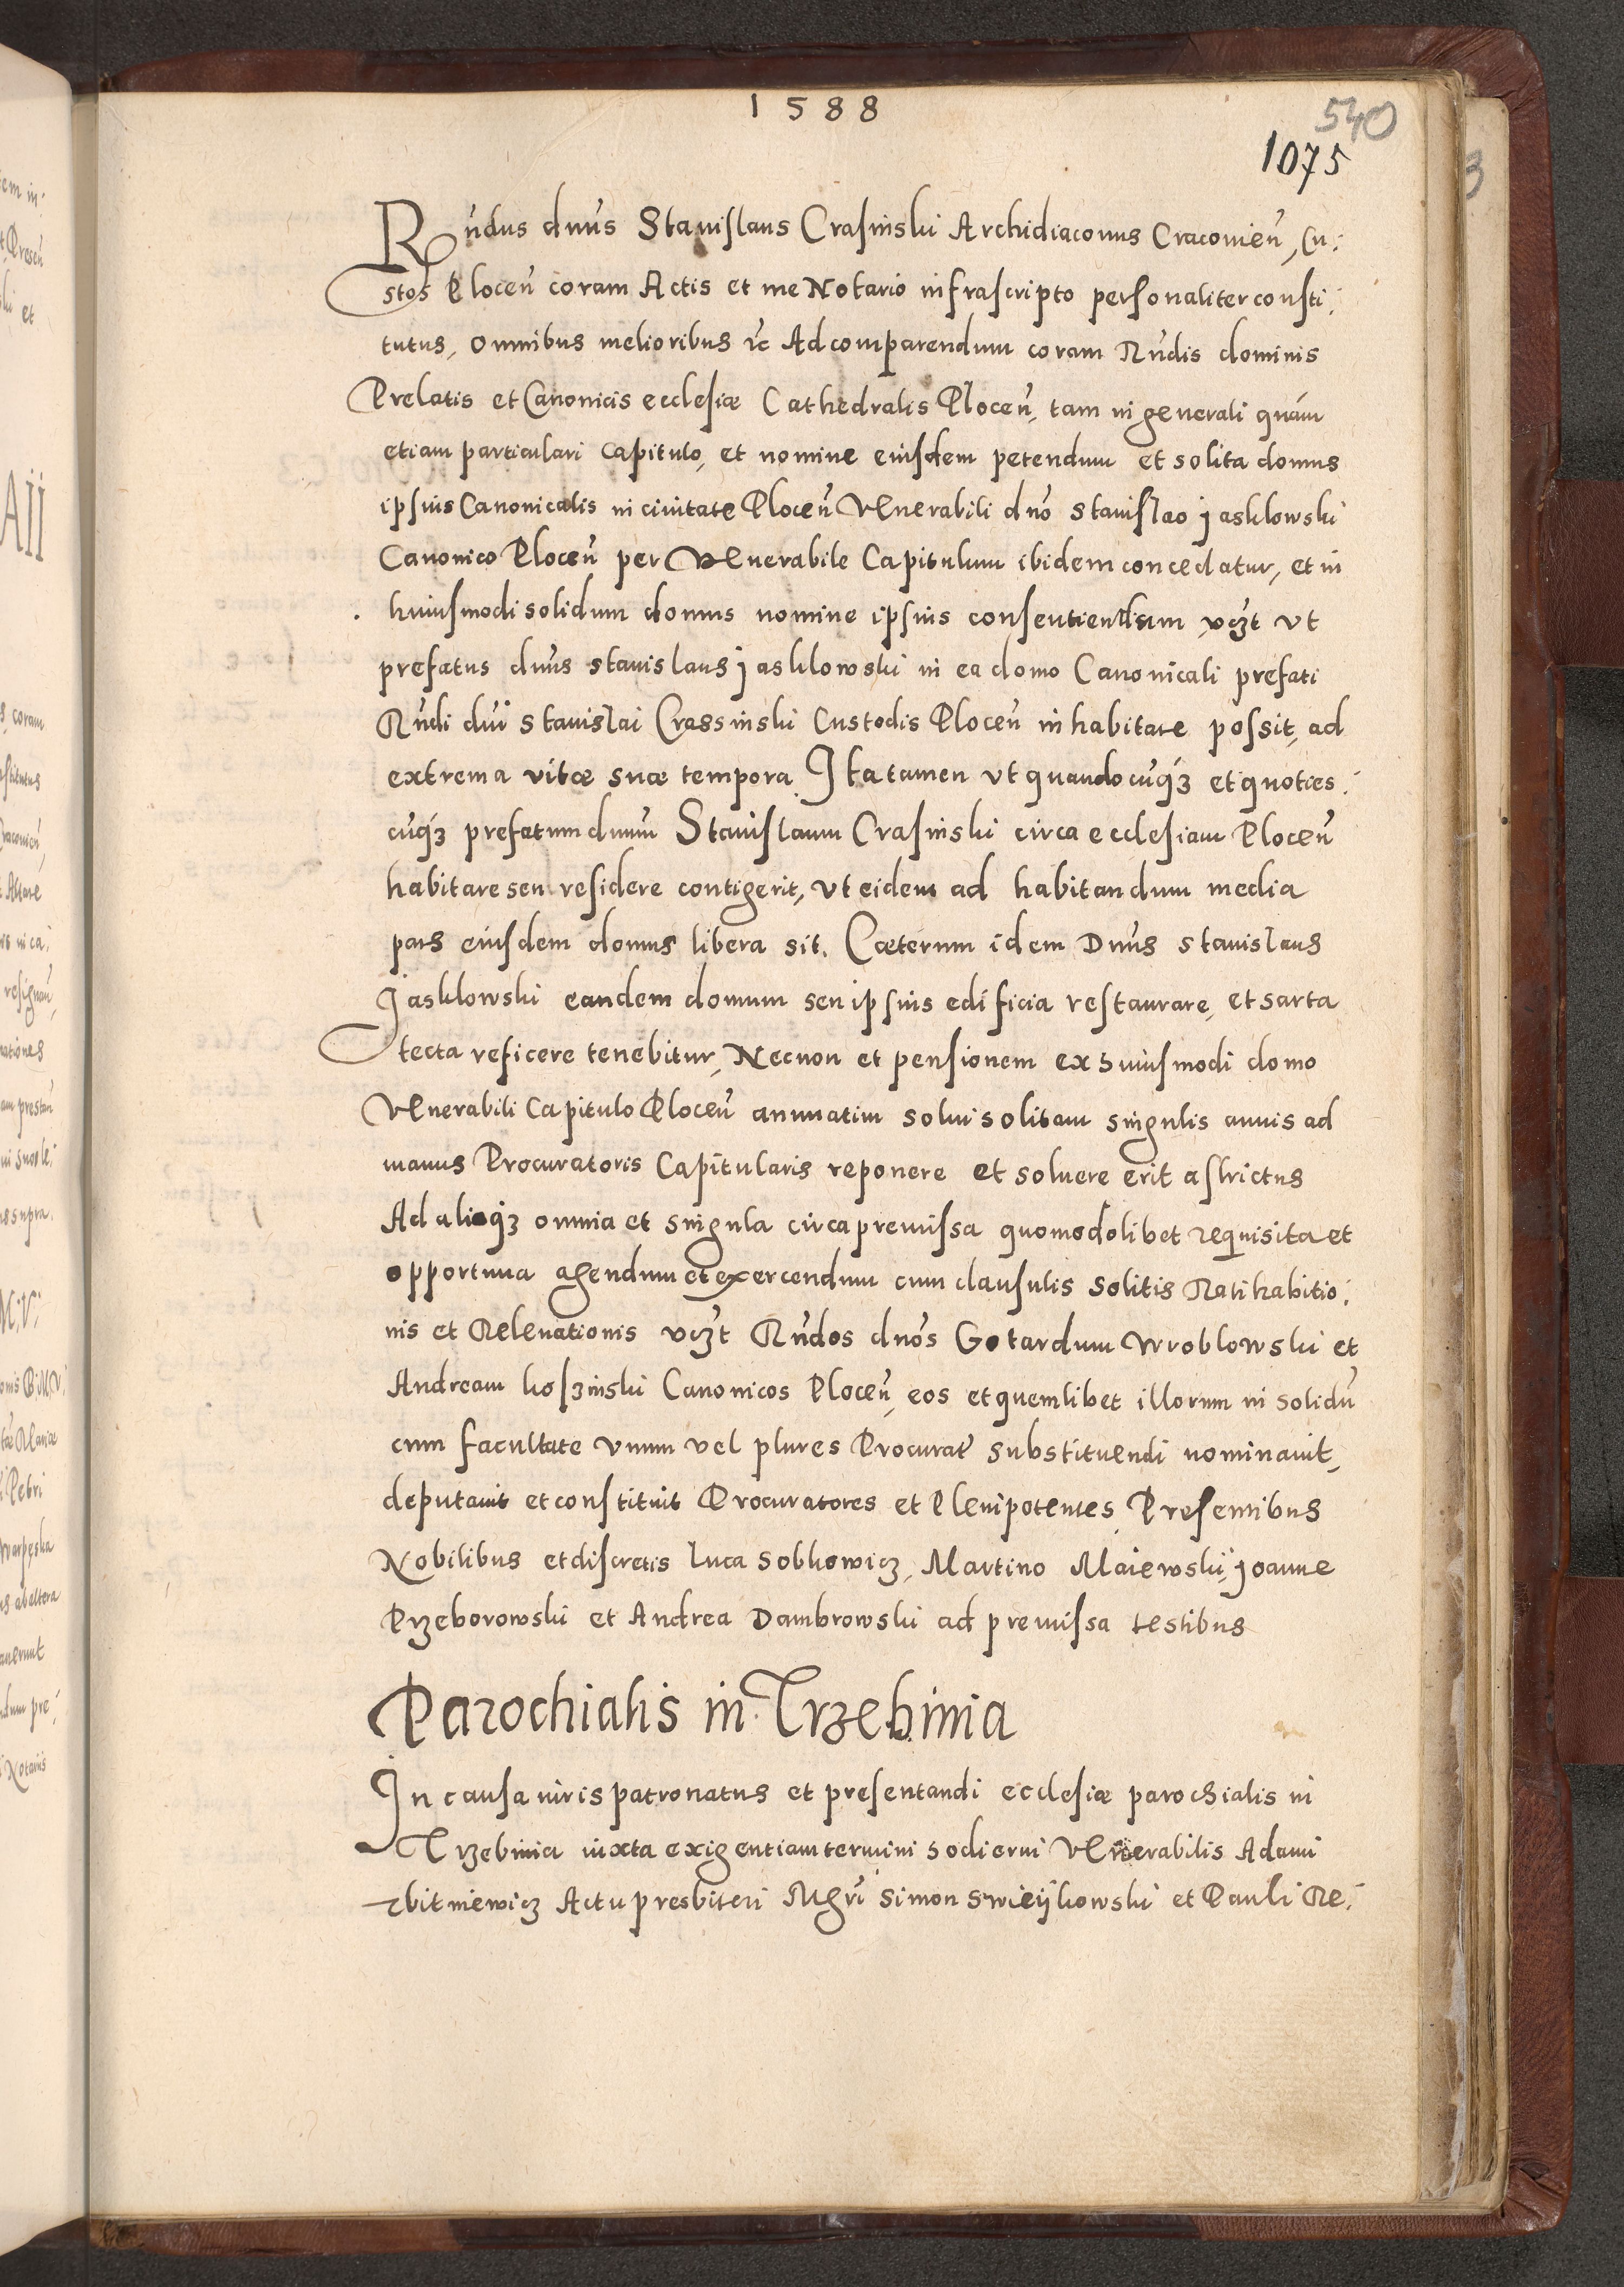 1588
540
1075
Rn̄dus dn̄us Stanislaus Crasinski Archidiaconus Cracouien̄, Cu:
stos Plocen̄ coram Actis et me Notario infrascripto personaliter consti:
tutus, omnibus melioribus &c Ad comparendum coram Rn̄dis dominis
Prelatis et Canonicis ecclesiæ Cathedralis Plocen̄, tam in generali quàm
etiam particulari capitulo, et nomine eiusdem petendum et solita domus
ipsius Canonicalis in ciuitate Plocen̄ Venerabili dn̄o Stanislao Jasklowski
Canonico Plocen̄ per Venerabile Capitulum ibidem concedatur, et in
huiusmodi solidum domus nomine ipsius consentiendum vczt vt
prefatus dn̄us Stanislaus Jasklowski in ea domo Canonicali prefati
Rn̄di dn̄i Stanislai Crassinski Custodis Plocen̄ inhabitare possit, ad
extrema vitæ suæ tempora. Ita tamen vt quandocuq́ꝫ et quoties:
cuq́ꝫ prefatum dn̄um Stanislaum Crasinski circa ecclesiam Plocen̄
habitare seu residere contigerit, vt eidem ad habitandum media
pars eiusdem domus libera sit. Cæterum idem Dn̄us Stanislaus
Jasklowski eandem domum seu ipsius edificia restaurare, et sarta
tecta reficere tenebitur, Necnon et pensionem ex huiusmodi domo
Venerabili Capitulo Plocen̄ annuatim solui solitam singulis annis ad
manus Procuratoris Capitularis reponere et soluere erit astrictus
Ad aliaq́ꝫ omnia et singula circa premissa quomodolibet requisita et
opportuna agendum et exercendum cum clausulis solitis Ratihabitio:
nis et Releuationis vczt Rn̄dos dn̄os Gotardum Wroblowski et
Andream koszinski Canonicos Plocen̄, eos et quemlibet illorum in solidū
cum facultate vnum vel plures Procurat̄ substituendi nominauit,
deputauit et constituit Procuratores et Plenipotentes Presentibus
Nobilibus et discretis Luca Sobkowicz, Martino Maiewski, Joanne
Przeborowski et Andrea Dambrowski ad premissa testibus
Parochialis in Trzebinia
In causa iuris patronatus et presentandi ecclesiæ parochialis in
Trzebinia iuxta exigentiam termini hodierni Venerabilis Adami
zbitniewicz Actu presbiteri Mgr̄i Simon Swieijkowski et Pauli Re: